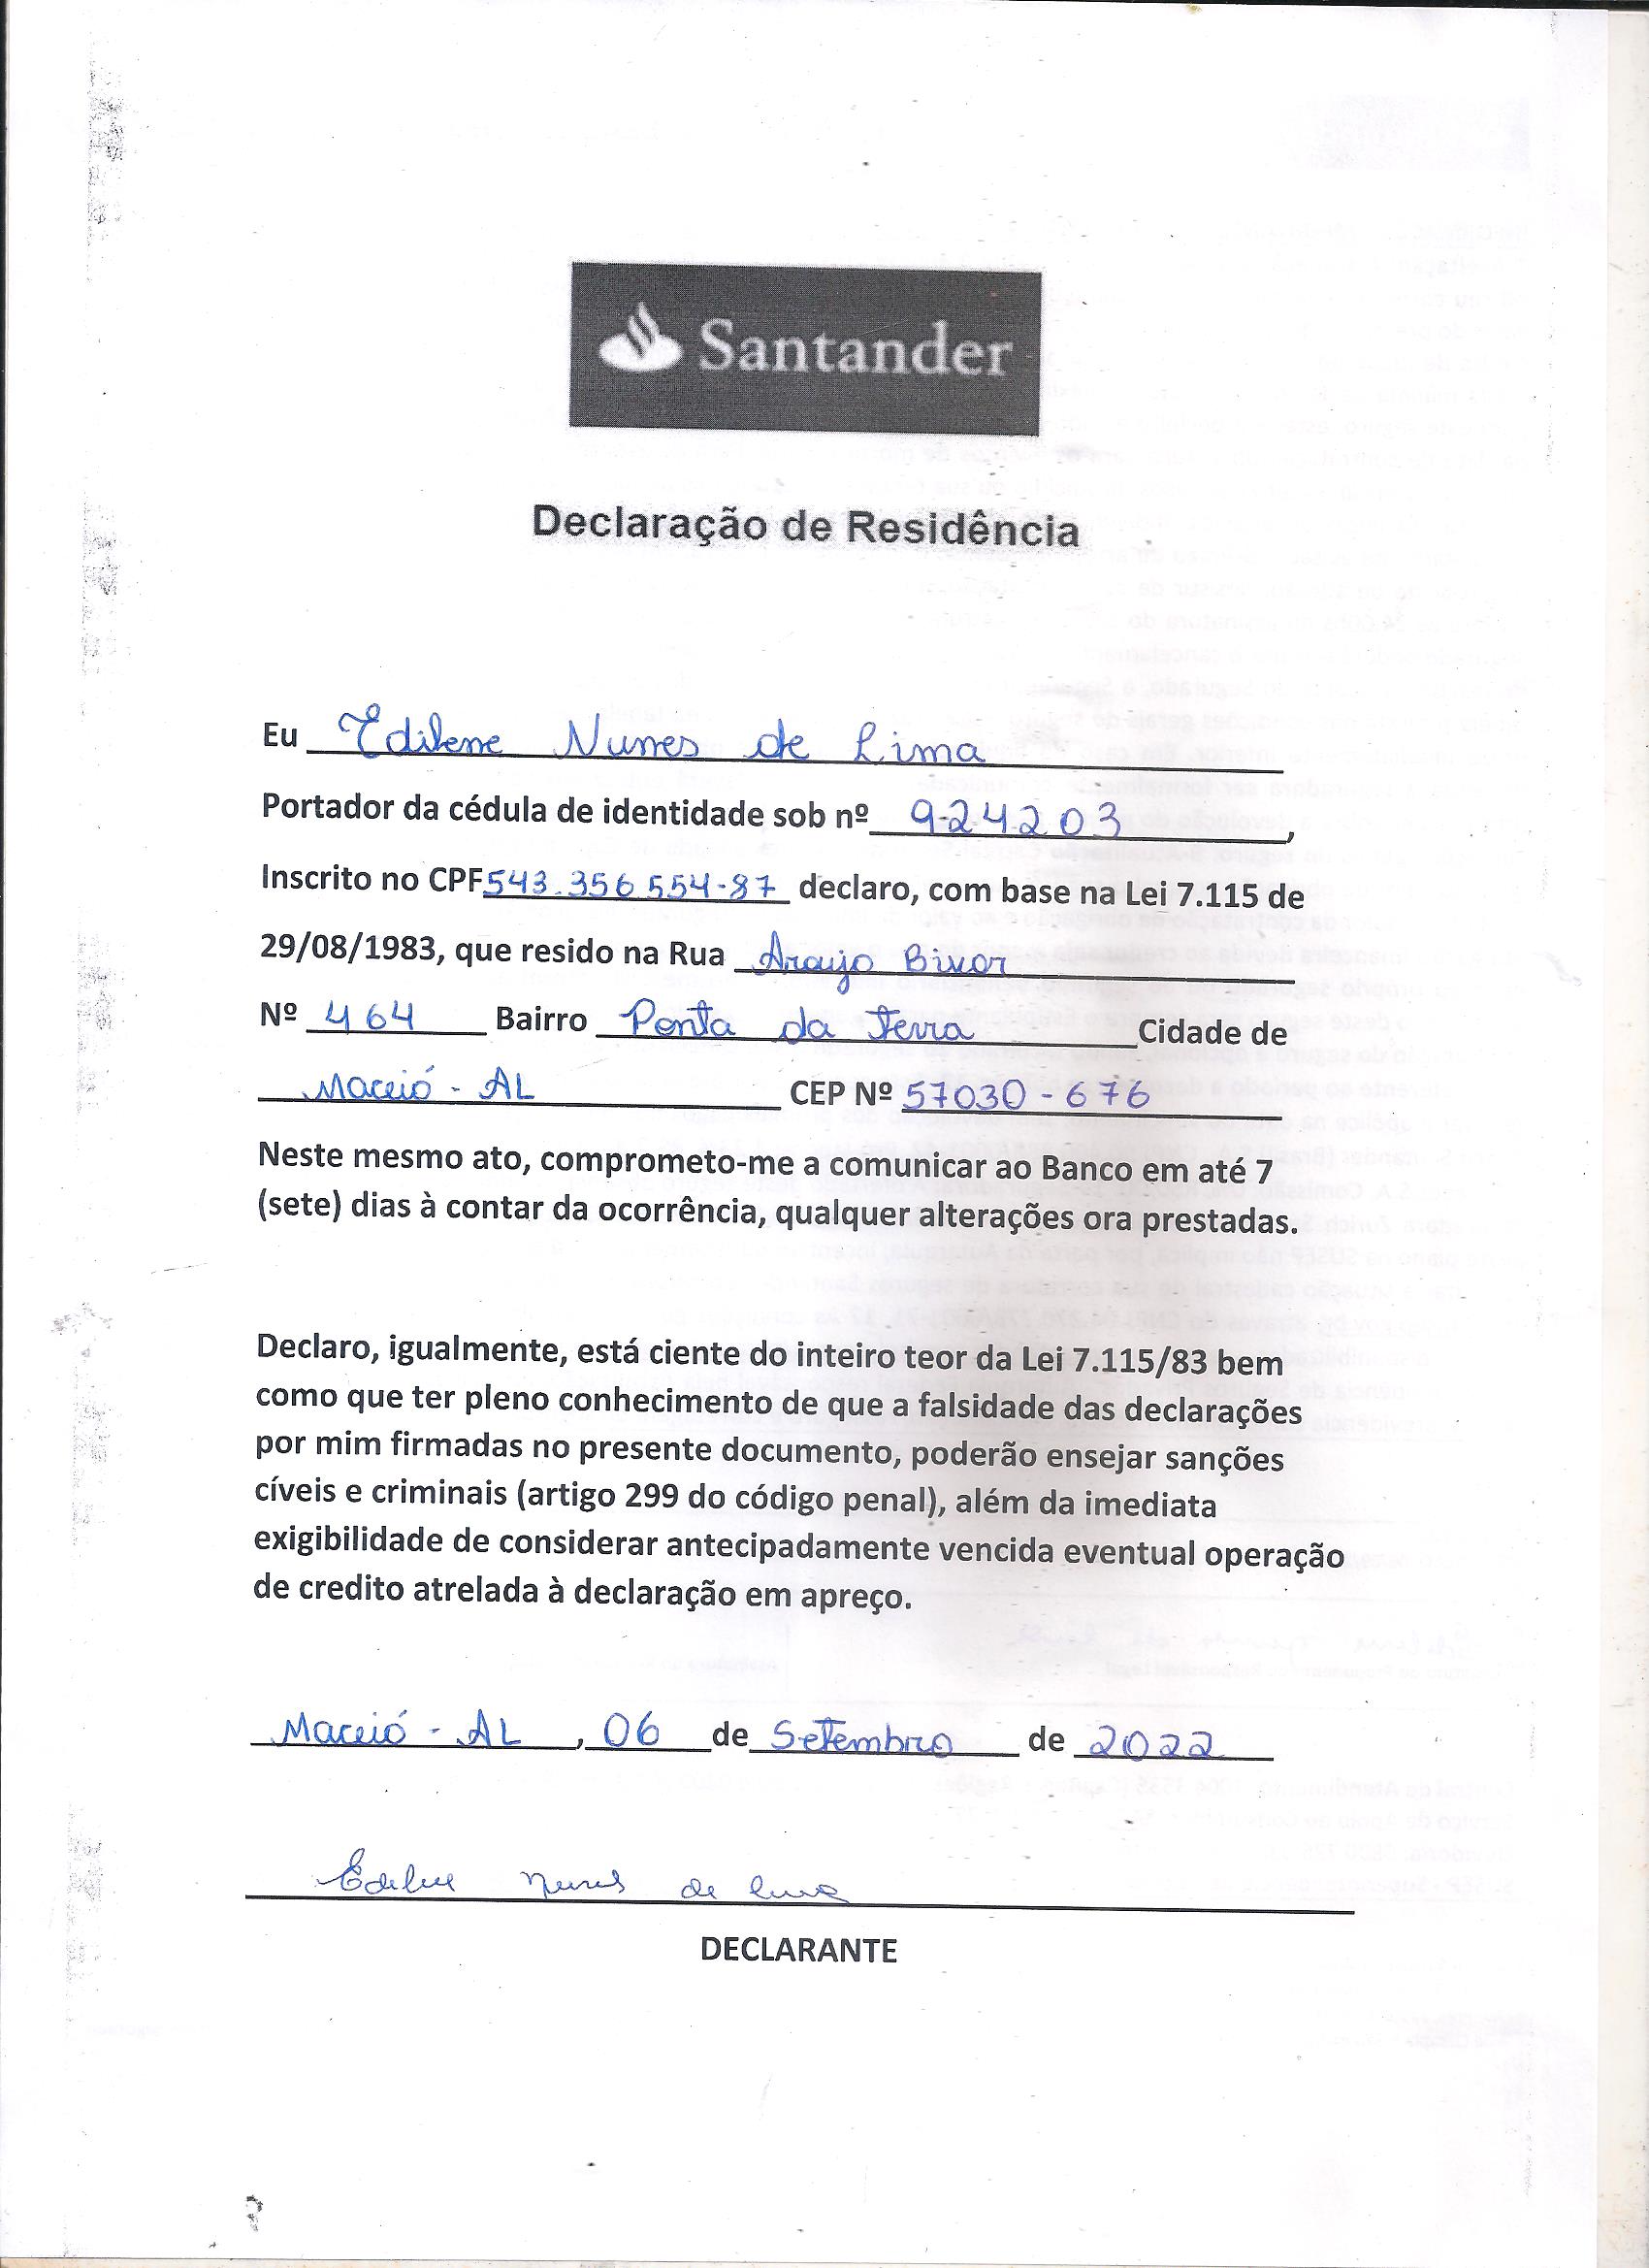 Santander
Declaração de Residência
Eu Edilene Nunes de Lima
Portador da cédula de identidade sob nº 924203,
Inscrito no CPF 543.356.554-87 declaro, com base na Lei 7.115 de
29/08/1983, que resido na Rua Araujo Bivor
Nº 464 Bairro Ponta da Terra Cidade de
Maceió - AL CEP Nº 57030-676
Neste mesmo ato, comprometo-me a comunicar ao Banco em até 7
(sete) dias à contar da ocorrência, qualquer alterações ora prestadas.
Declaro, igualmente, está ciente do inteiro teor da Lei 7.115/83 bem
como que ter pleno conhecimento de que a falsidade das declarações
por mim firmadas no presente documento, poderão ensejar sanções
cíveis e criminais (artigo 299 do código penal), além da imediata
exigibilidade de considerar antecipadamente vencida eventual operação
de credito atrelada à declaração em apreço.
Maceió - AL, 06 de Setembro de 2022
Edilene Nunes de Lima
DECLARANTE